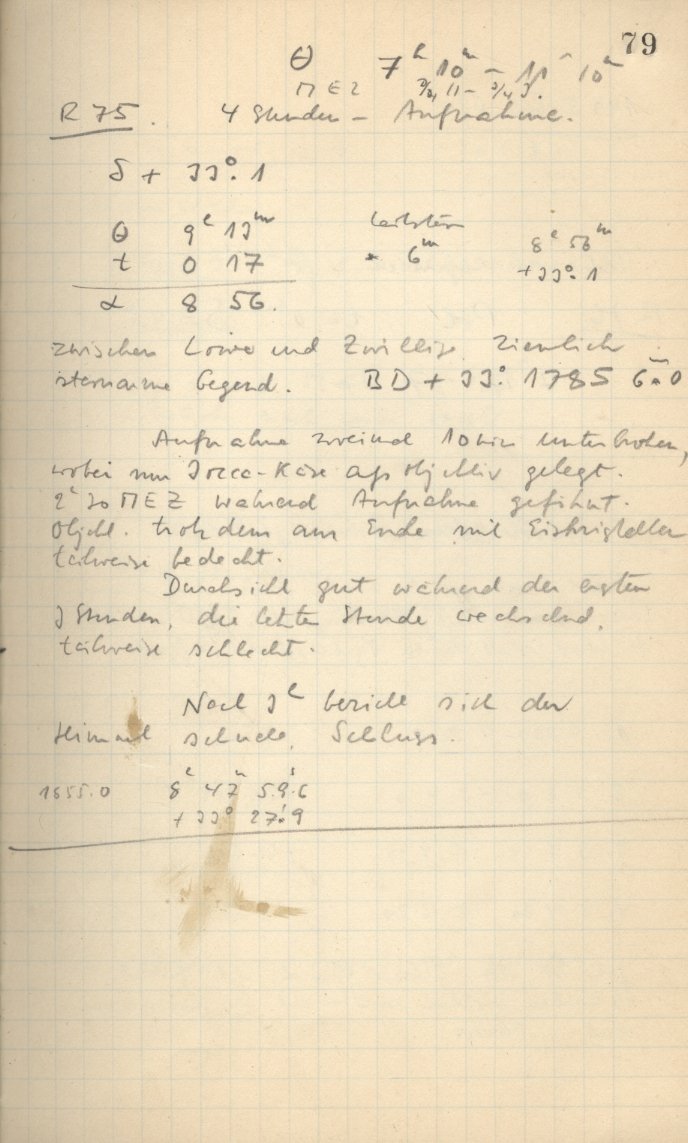 79
θ 7h 10m – 11h 10m
MEZ 3/4 11 – 3/4 3.
R 75. 4 Stunden – Aufnahme.
δ + 33°.1
θ 9h 13m Leitstern 8h 56m
t 0 17 * 6m +33°.1
α 8 56.
zwischen Löwe und Zwillige. Ziemlich
sternarme Gegend. BD + 33°. 1785 6m.0
Aufnahme zweimal 10 min unterbrochen,
wobei nun auf Objektiv gelegt.
2h 30 MEZ während Aufnahme geführt.
Objekt. trotzdem am Ende mit
teilweise bedeckt.
Durchsicht gut während der ersten
3 Stunden, die letzte Stunde wechselnd,
teilweise schlecht.
Nach 3h bezieht sich der
Himmel schnell. Schluss.
1855.0 8h 47m 59s.6
+ 33° 27'.9